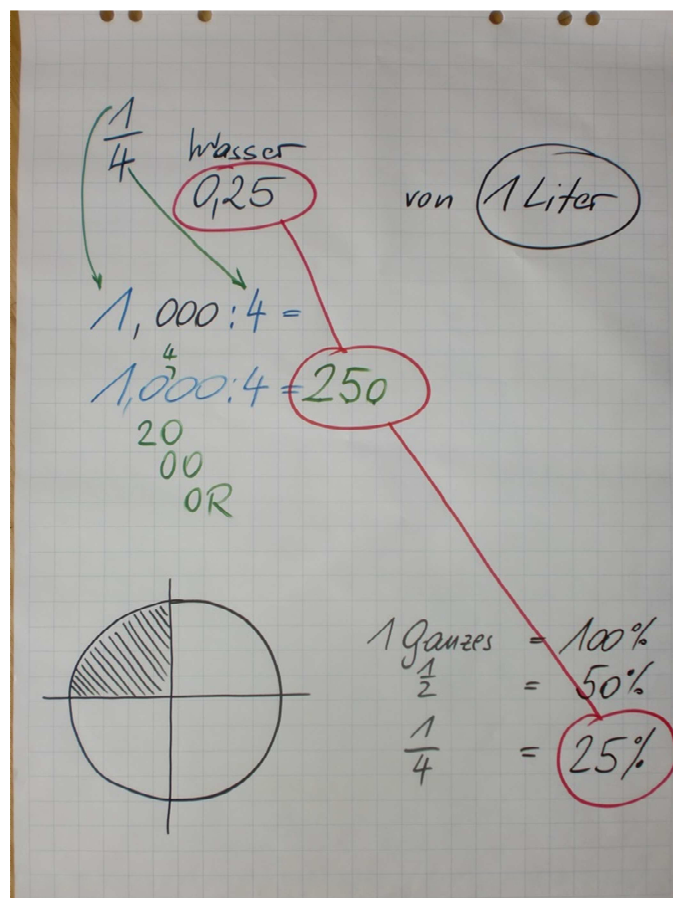 1/4
Wasser
0,25 von 1 Liter
1,000:4=
4
1,000:4=250
20
00
0R
1 Ganzes = 100%
1/2 = 50%
1/4 = 25%